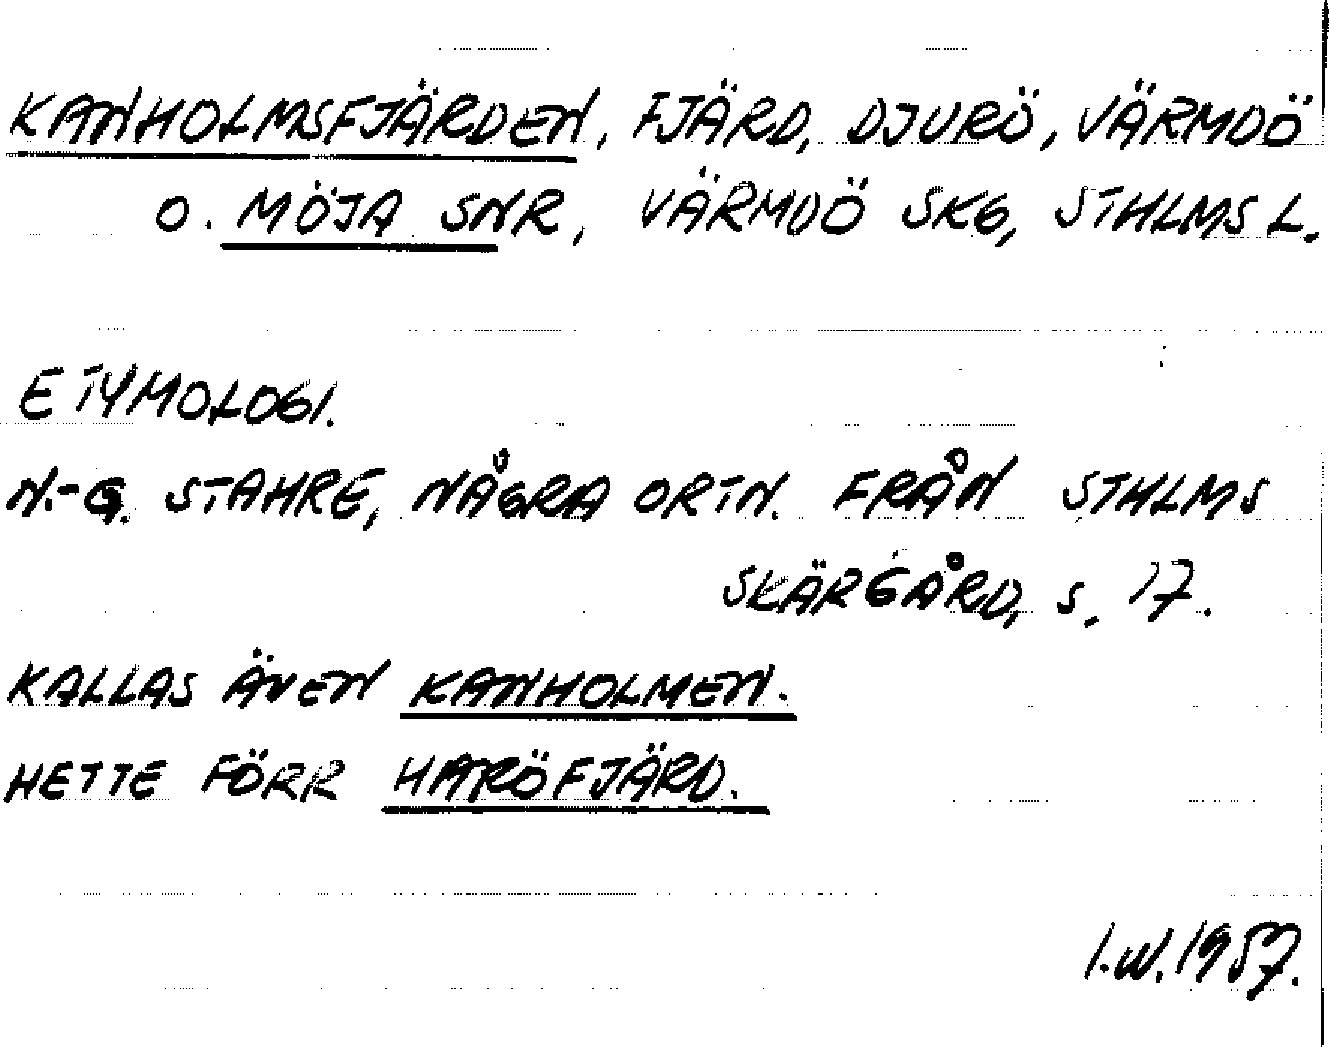 KANHOLMSFJÄRDEN, FJÄRD, DJURÖ, VÄRMDÖ
O. MÖJA SNR, VÄRMDÖ SKG, STHLMS L.
ETYMOLOGI.
N.-G. STAHRE, NÅGRA ORTN. FRÅN STHLMS
SKÄRGÅRD, S. 17.
KALLAS ÄVEN KANHOLMEN.
HETTE FÖRR HARÖFJÄRD.
I.W. 1957.